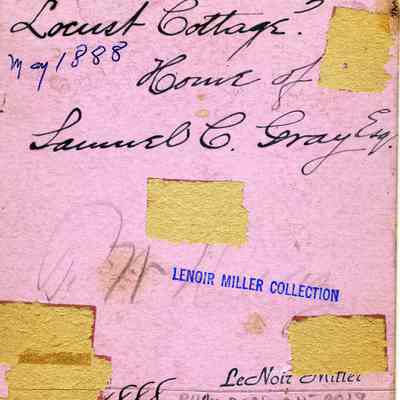 Locust Cottage.
May 1888
Home of
Samuel C. Gray Esq.
LENOIR MILLER COLLECTION
LeNoir Miller